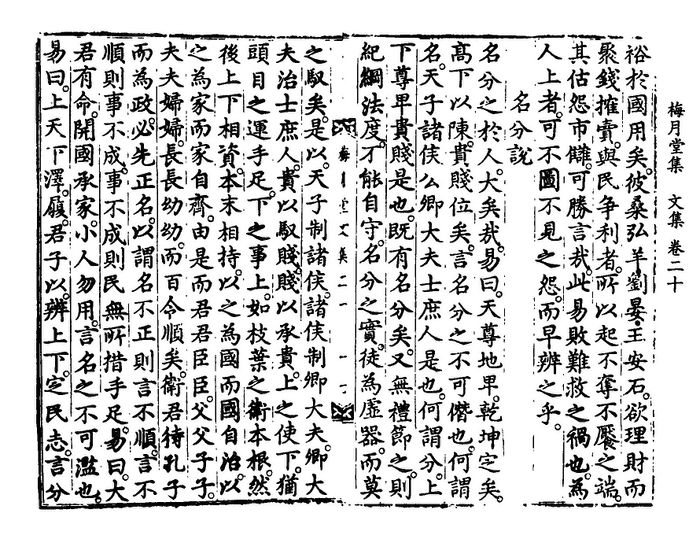 梅月堂集 文集 卷二十
裕於國用矣。彼桑弘羊劉晏王安石。欲理財而
聚錢搉賣。與民争利者。所以起不奪不饜之端。
其估怨市讎。可勝言哉。此易敗難救之禍也。為
人上者。可不圖不見之怨。而早辨之乎。
名分說
名分之於人。大矣哉。易曰。天尊地卑。乾坤定矣。
高下以陳。貴賤位矣。言名分之不可僭也。何謂
名。天子諸侯公卿大夫士庶人是也。何謂分。上
下尊卑貴賤是也。既有名分矣。又無禮節之則
紀綱法度。才能自守。名分之實。徒為虛器。而莫
之馭矣。是以。天子制諸侯。諸侯制卿大夫。卿大
夫治士庶人。貴以馭賤。賤以承貴。上之使下。猶
頭目之運手足。下之事上。如枝葉之衛本根。然
後上下相資。本末相持。以之為國而國自治。以
之為家而家自齊。由是而君君臣臣。父父子子。
夫夫婦婦。長長幼幼。而百令順矣。衛君待孔子
而為政。必先正名。以謂名不正則言不順。言不
順則事不成。事不成則民無所措手足。易曰。大
君有命。開國承家。小人勿用。言名之不可濫也。
易曰。上天下澤。履。君子以。辨上下。定民志。言分